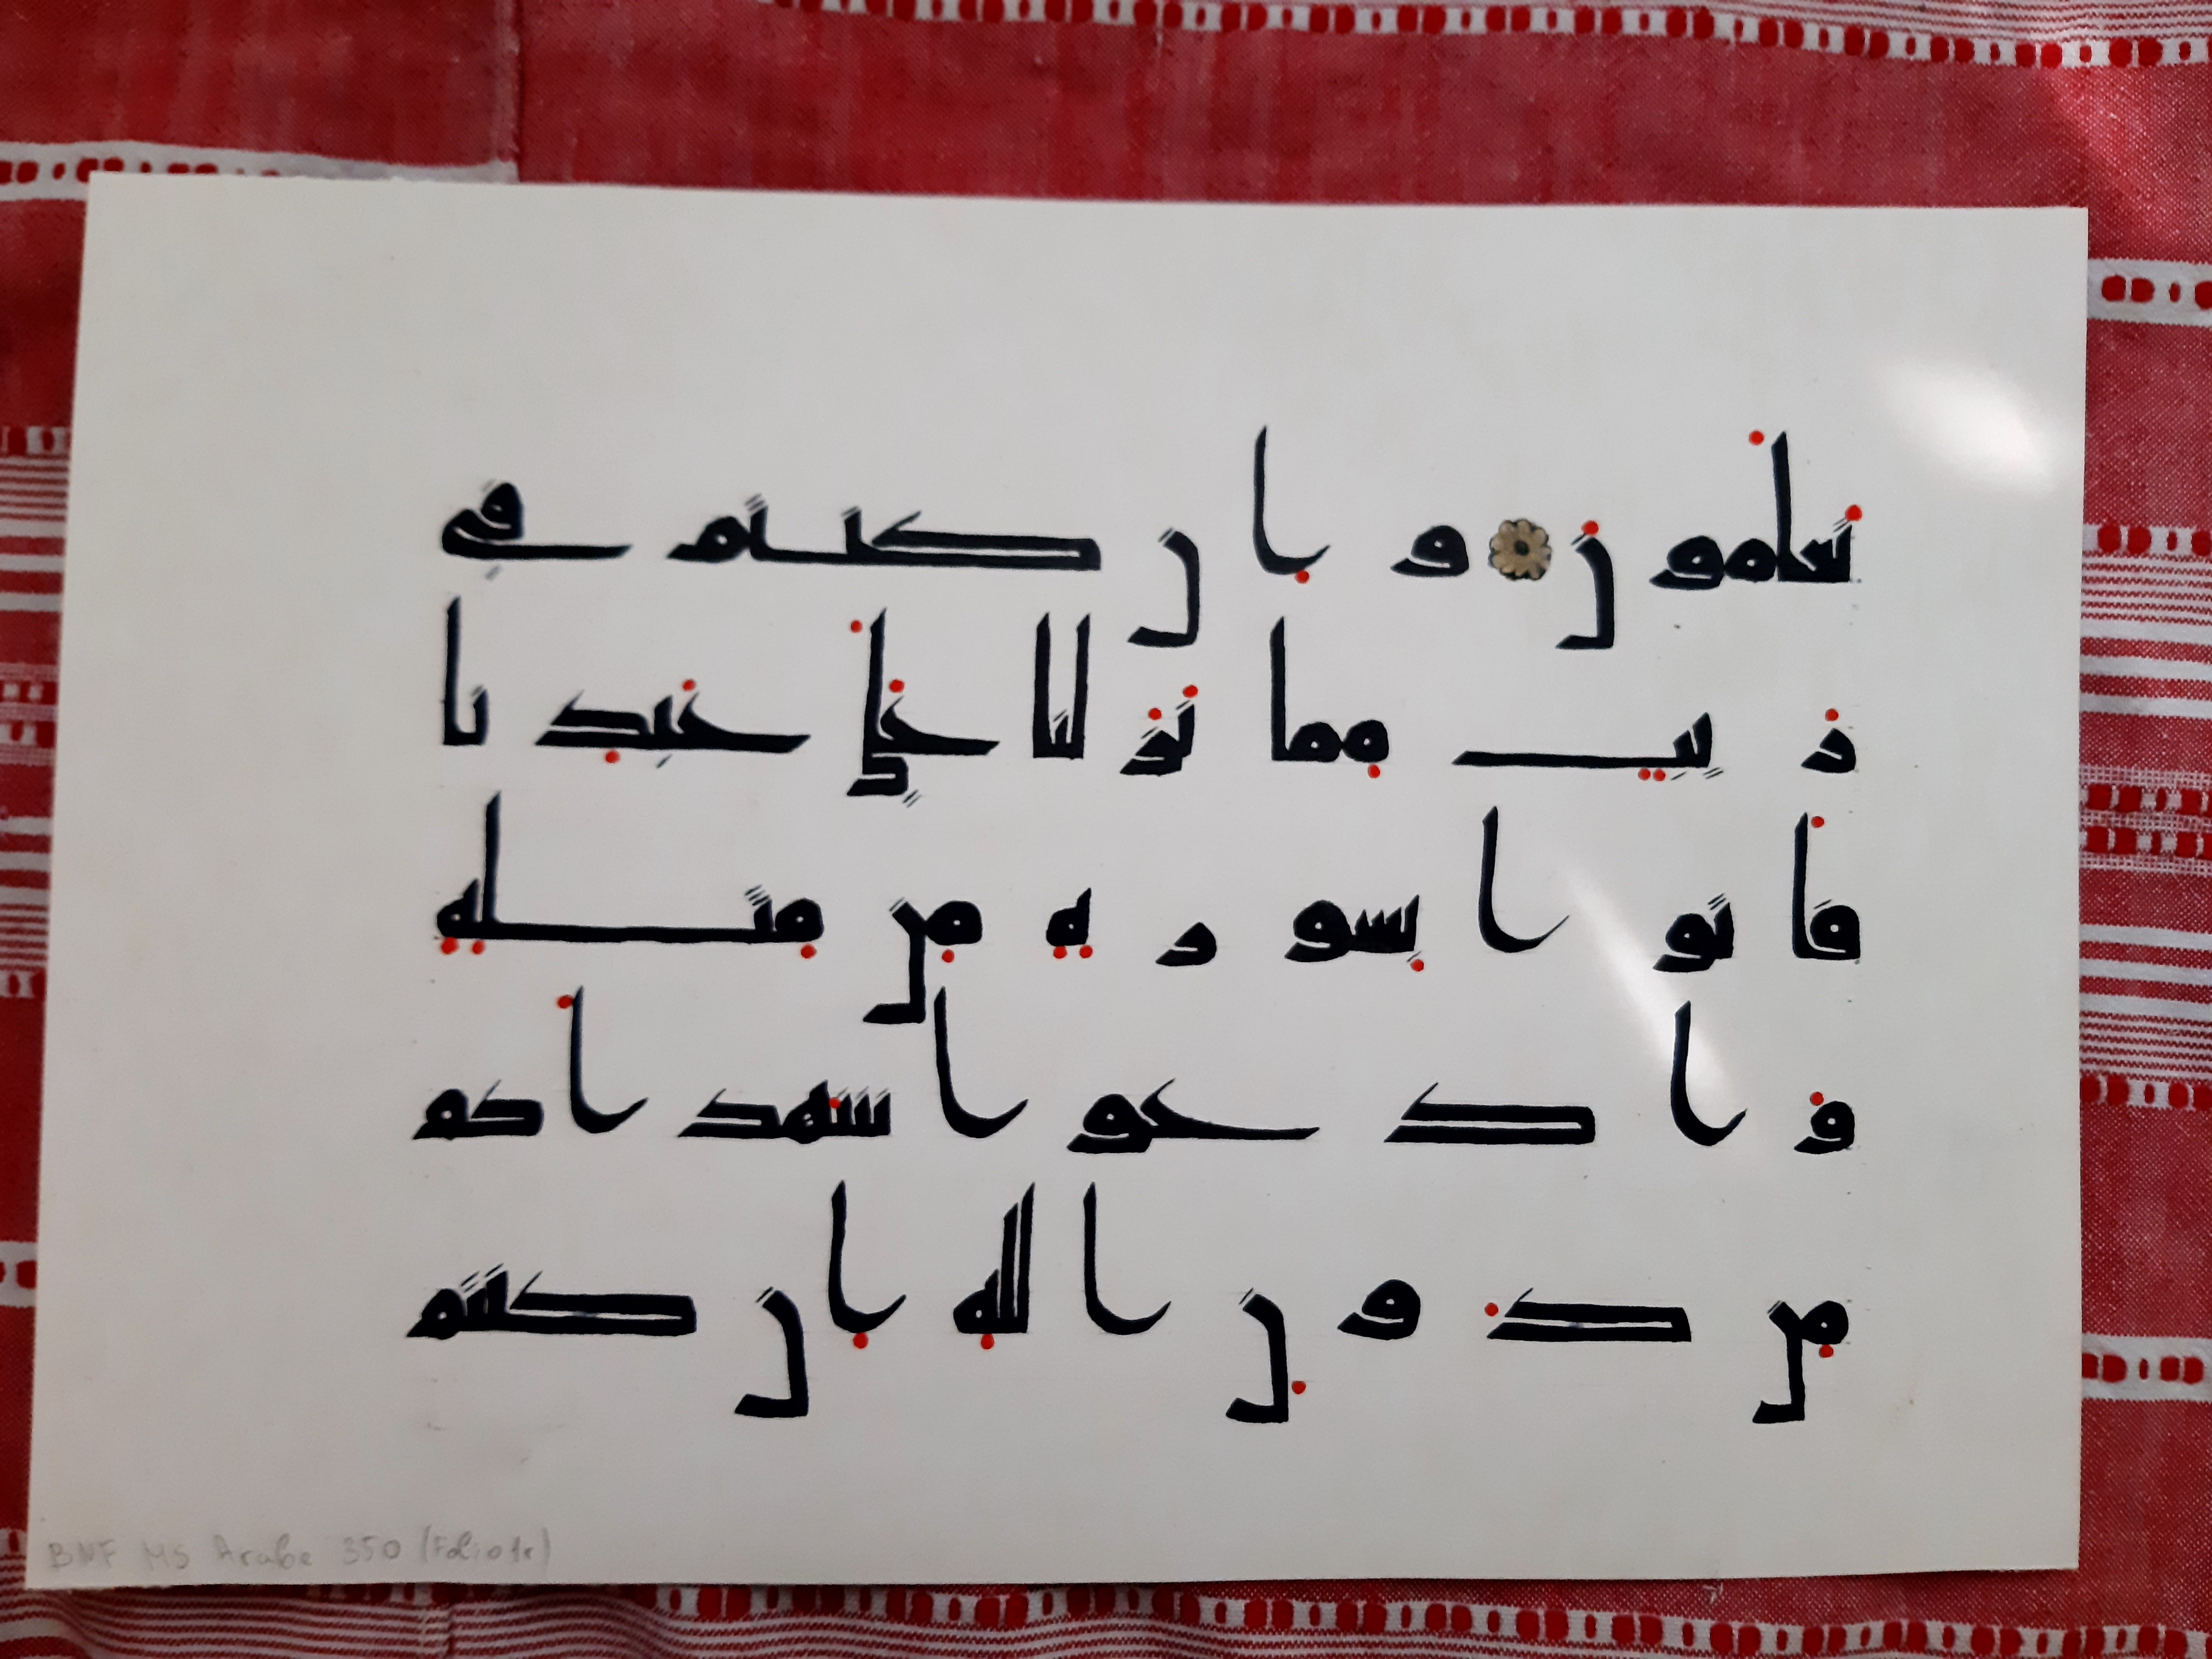 تعلمون وان كنتم في
ريب مما نزلنا على عبدنا
فاتوا بسورة من مثله
وادعوا شهداكم
من دون الله ان كنتم
BNF MS Arabe 350 (Folio 1r)